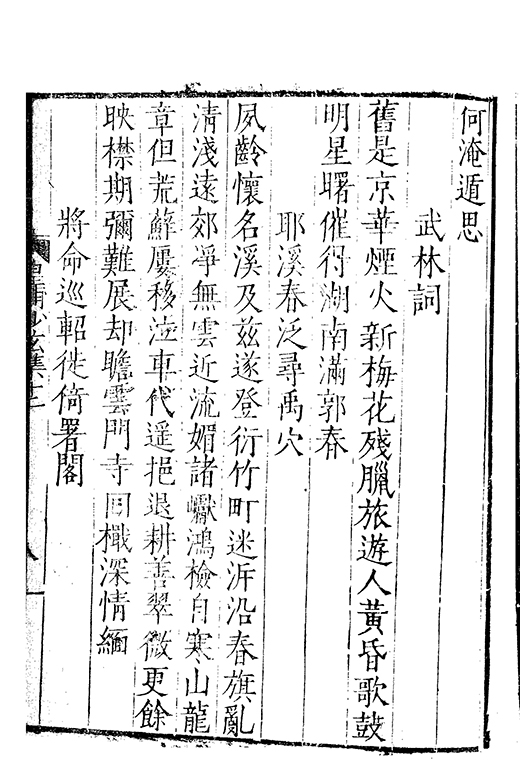 何淹遁思
武林詞
舊是京華煙火新梅花殘臘旅遊人黃昏歌鼓
明星曙催得湖南滿郭春
耶溪春泛尋禹穴
夙齡懷名溪及茲遂登衍竹町迷泝沿春旗亂
清淺遠郊凈無雲近流媚諸巘鴻檢自寒山龍
章但荒蘚屢移泣車代遥挹退耕善翠微更餘
映襟期彌難展却瞻雲門寺回檝深情緬
將命巡軺徙倚署閣